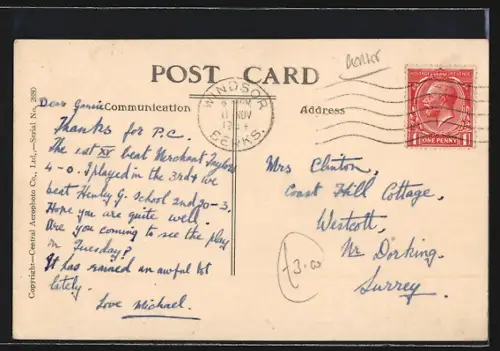 POST CARD
Communication
Address
WINDSOR
NOV
BERKS.
ONE PENNY
Dear
Thanks for P.C.
The 1st XV beat Merchant Taylors
4-0. I played in the 3rd & we
beat Henly G. School 2nd 30-3.
Hope you are quite well.
Are you coming to see the play
on Tuesday?
It has rained an awful lot
lately.
Love Michael.
Mrs Clinton,
Coast Hill Cottage,
Westcott,
Nr Dorking.
Surrey.
£3.00
Copyright—Central Aerophoto Co., Ltd.,—Serial No.